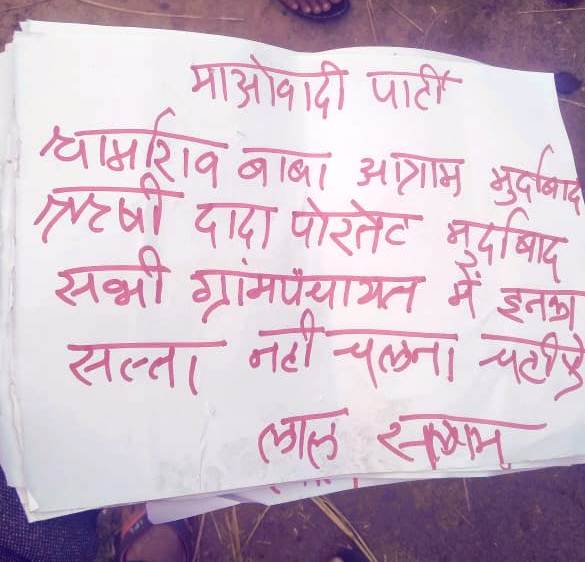 माओवादी पार्टी
धर्माराव बाबा आत्राम मुर्दाबाद
ऋषी दादा पोरतेट मुर्दाबाद
सभी ग्रांमपंचायत में इनका
सल्ता नही चलना चहीऐ
लाल सलाम